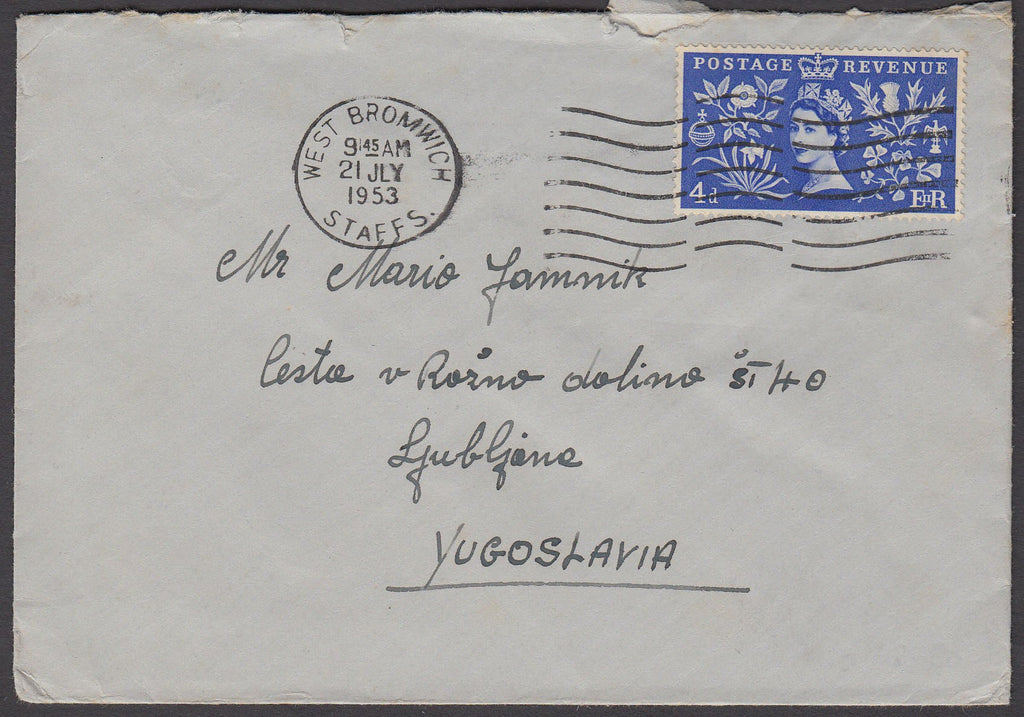 POSTAGE REVENUE
4d EIIR
WEST BROMWICH
9 45 AM
21 JLY
1953
STAFFS.
Mr Mario Jamnik
Cesta v Rožno dolino ŠT 40
Ljubljana
YUGOSLAVIA